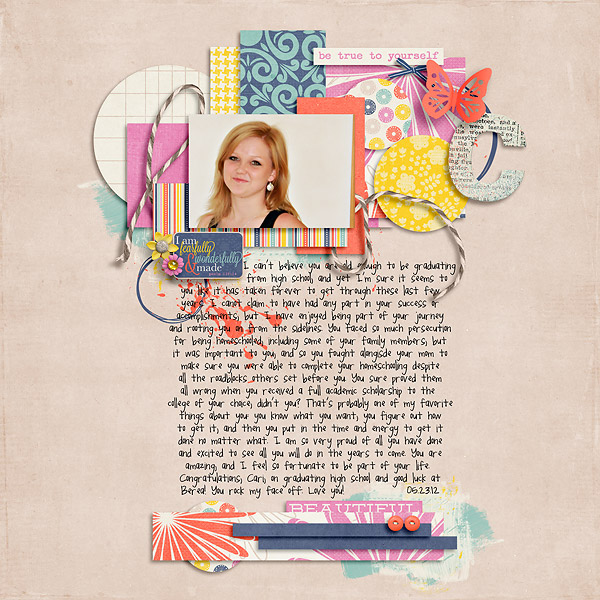 be true to yourself
I am
fearfully
& wonderfully
made
I can't believe you are old enough to be graduating
from high school, and yet I'm sure it seems to
you like it has taken forever to get through these last few
years. I can't claim to have had any part in your success or
accomplishments, but I have enjoyed being part of your journey
and rooting you on from the sidelines. You faced so much persecution
for being homeschooled, including some of your family members, but
it was important to you, and so you fought alongside your mom to
make sure you were able to complete your homeschooling despite
all the roadblocks others set before you. You sure proved them
all wrong when you received a full academic scholarship to the
college of your choice, didn't you? That's probably one of my favorite
things about you: you know what you want, you figure out how
to get it, and then you put in the time and energy to get it
done no matter what. I am so very proud of all you have done
and excited to see all you will do in the years to come. You are
amazing, and I feel so fortunate to be part of your life.
Congratulations, Cari, on graduating high school and good luck at
Berea! You rock my face off. Love you! 05.23.12
BEAUTIFUL